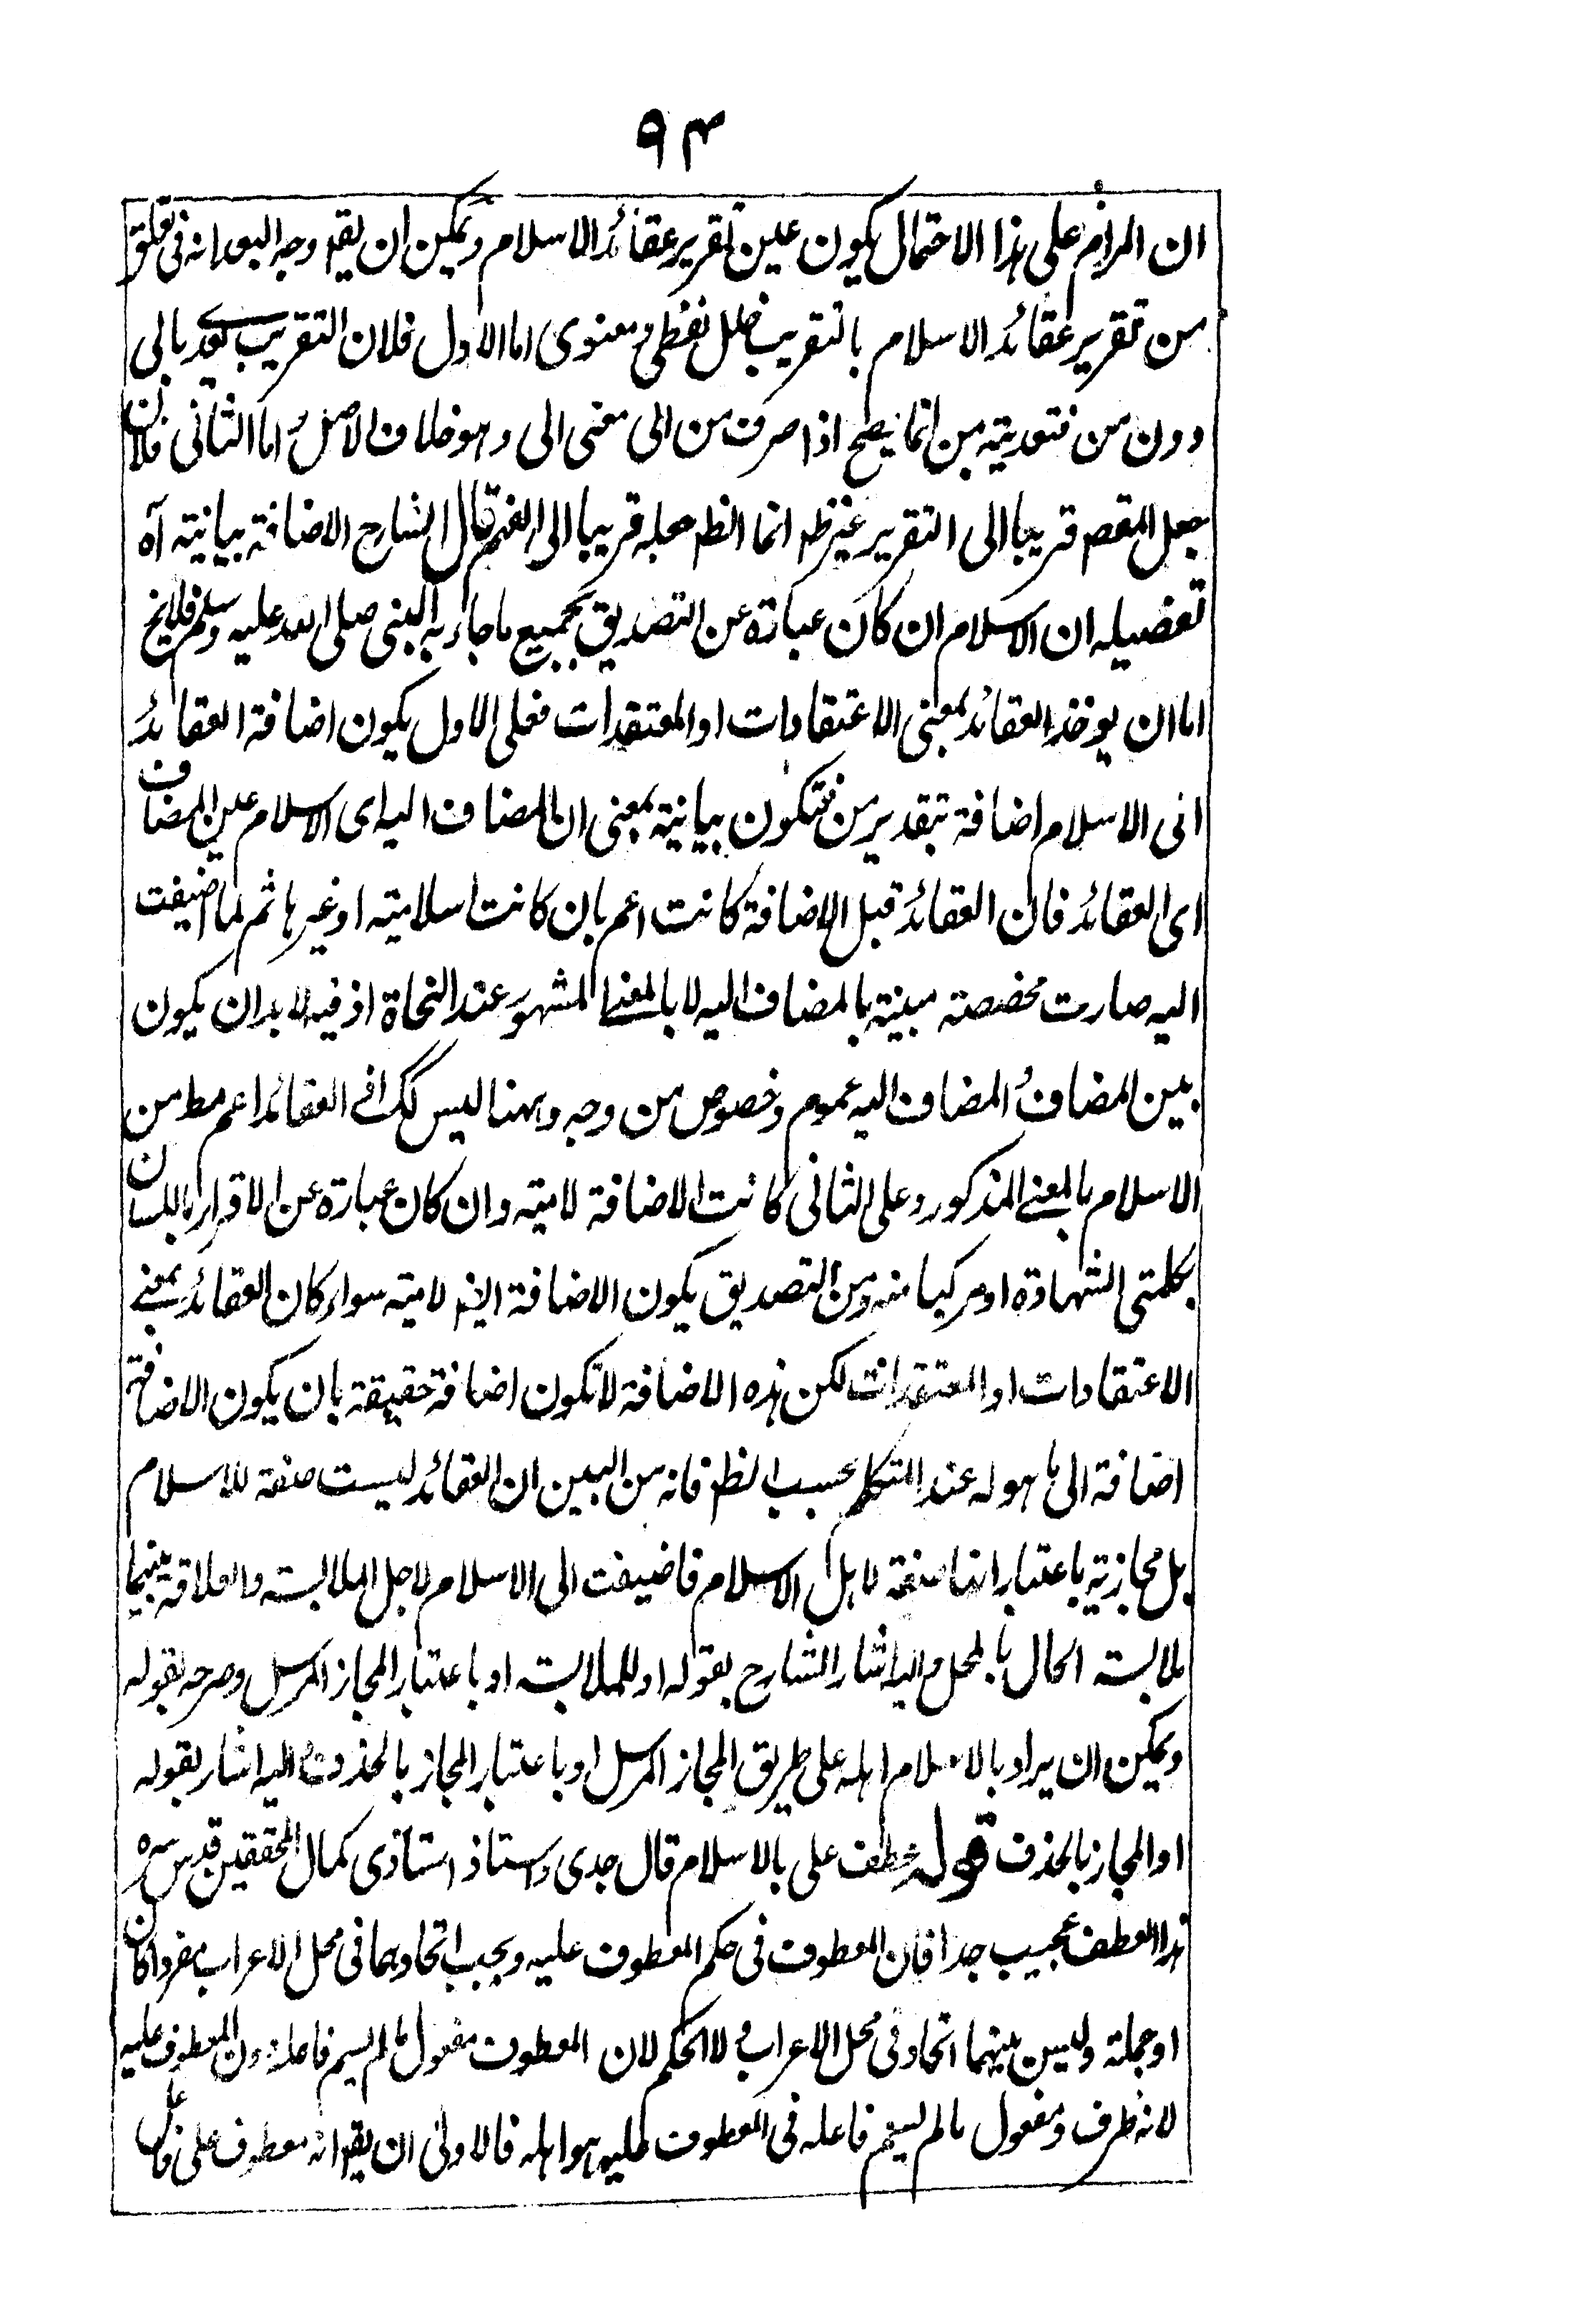 ٩٤
ان المرام على هذا الاحتمال يكون عين تقرير عقائد الاسلام ويمكن ان يقم وجه البعد انه فى تعلق
من تقرير عقائد الاسلام بالتقريب خلل لفظى ومعنوى اما الاول فلان التقريب يتعدى بالى
دون من فتعديته بمن انما يصح اذا صرف من الى معنى الى وهو خلاف الاصل واما الثانى فلان
جعل المقصم قريبا الى التقرير غير ظم انما الظم جعله قريبا الى الفهم قال الشارح الاضافة بيانية آه
تفصيله ان الاسلام ان كان عبارة عن التصديق بجميع ما جاء به النبى صلى الله عليه وسلم فلا يخ
اما ان يوخذ العقائد بمعنى الاعتقادات او المعتقدات فعلى الاول يكون اضافة العقائد
الى الاسلام اضافة بتقدير من فتكون بيانية بمعنى ان المضاف اليه اى الاسلام عين المضاف
اى العقائد فان العقائد قبل الاضافة كانت اعم بان كانت اسلامية او غيرها ثم لما اضيفت
اليه صارت مخصصة مبينة بالمضاف اليه لا بالمعنے المشهور عند النحاة اذ فيه لا بد ان يكون
بين المضاف والمضاف اليه عموم وخصوص من وجه وههنا ليس كك اذ العقائد اعم مط من
الاسلام بالمعنے المذكور وعلى الثانى كانت الاضافة لامية وان كان عبارة عن الاقرار باللسان
بكلمتى الشهادة او مركبا منه ومن التصديق يكون الاضافة ايضم لامية سواء كان العقائد بمعنے
الاعتقادات او المعتقدات لكن هذه الاضافة لا تكون اضافة حقيقة بان يكون الاضافة
اضافة الى ما هو له عند المتكلم بحسب الظم فانه من البين ان العقائد ليست صفة للاسلام
بل مجازية باعتبار انها صفة لاهل الاسلام فاضيفت الى الاسلام لاجل الملابسة والعلاقة بينهما
ملابسة الحال بالمحل واليه اشار الشارح بقوله او للملابسة او باعتبار المجاز المرسل وصرحه بقوله
ويمكن ان يراد بالاسلام اهله على طريق المجاز المرسل او باعتبار المجاز بالحذف واليه اشار بقوله
او المجاز بالحذف قوله عطف على بالاسلام قال جدى واستاذ استاذى كمال المحققين قدس سره
هذا العطف عجيب جدا فان المعطوف فى حكم المعطوف عليه ويجب اتحادهما فى محل الاعراب مفردا كان
او جملة وليس بينهما اتحاد فى محل الاعراب ولا الحكم لان المعطوف مفعول ما لم يسم فاعله دون المعطوف عليه
لانه ظرف ومفعول ما لم يسم فاعله فى المعطوف عليه هو اهله فالاولى ان يقم انه معطوف على فاعل